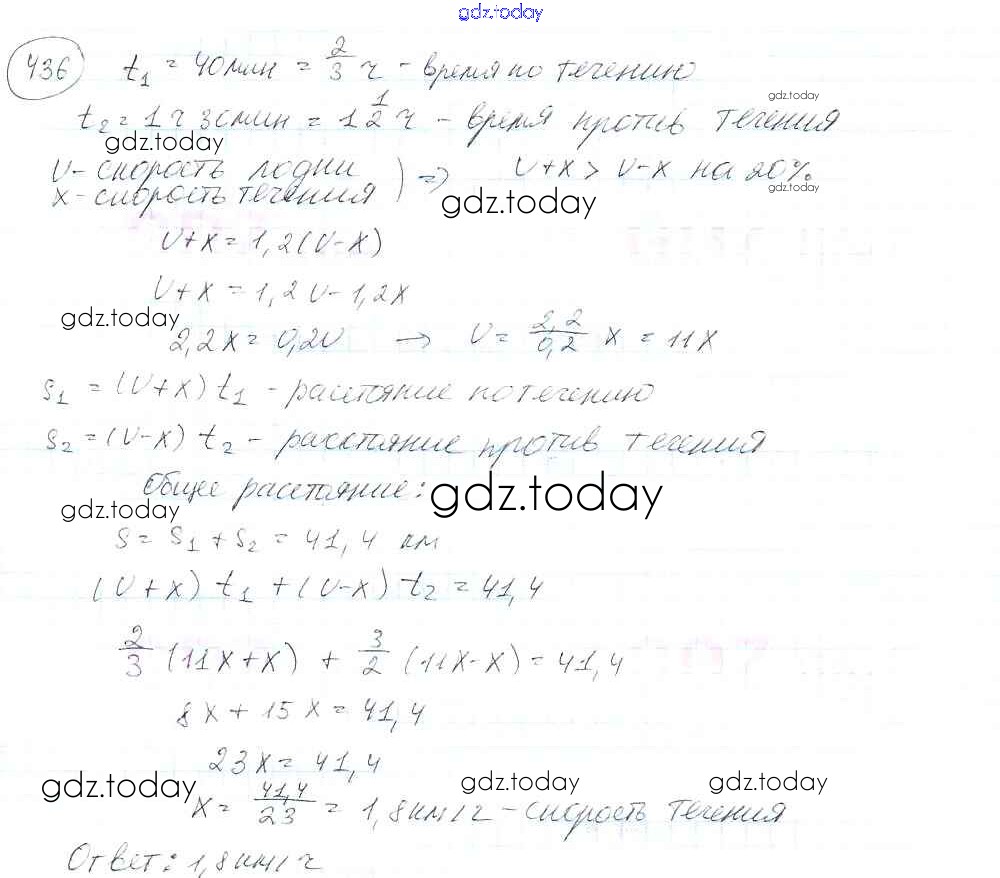 gdz.today
436 t₁ = 40 мин = 2/3 ч - время по течению
gdz.today
t₂ = 1 ч 30 мин = 1 1/2 ч - время против течения
gdz.today
υ - скорость лодки
x - скорость течения ) => υ+x > υ-x на 20%
gdz.today
gdz.today
υ+x = 1,2(υ-x)
υ+x = 1,2υ - 1,2x
gdz.today
2,2x = 0,2υ → υ = 2,2/0,2 x = 11x
s₁ = (υ+x) t₁ - расстояние по течению
s₂ = (υ-x) t₂ - расстояние против течения
Общее расстояние:
gdz.today
gdz.today
s = s₁ + s₂ = 41,4 км
(υ+x) t₁ + (υ-x) t₂ = 41,4
2/3 (11x+x) + 3/2 (11x-x) = 41,4
8x + 15x = 41,4
23x = 41,4
gdz.today
gdz.today
gdz.today
x = 41,4/23 = 1,8 км/ч - скорость течения
Ответ: 1,8 км/ч